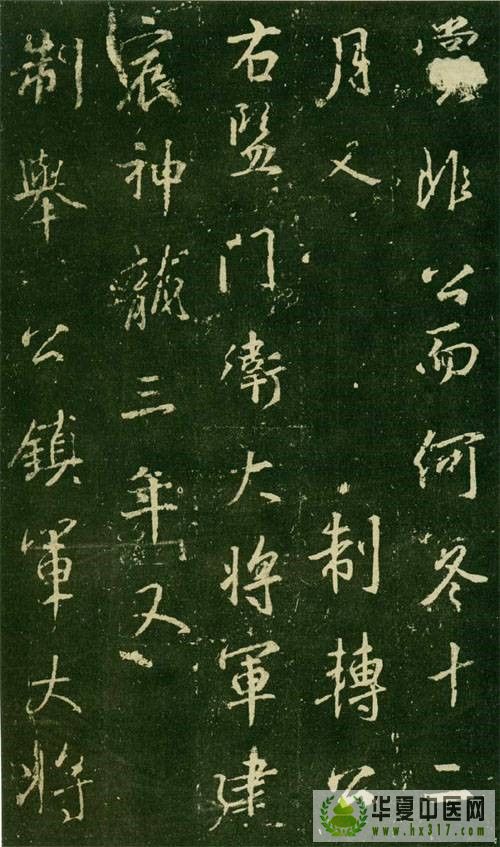 非公而何冬十二
月又 制轉公
右監門衛大將軍建
宸神龍三年又
制舉公鎮軍大將
华夏中医网
www.hx317.com